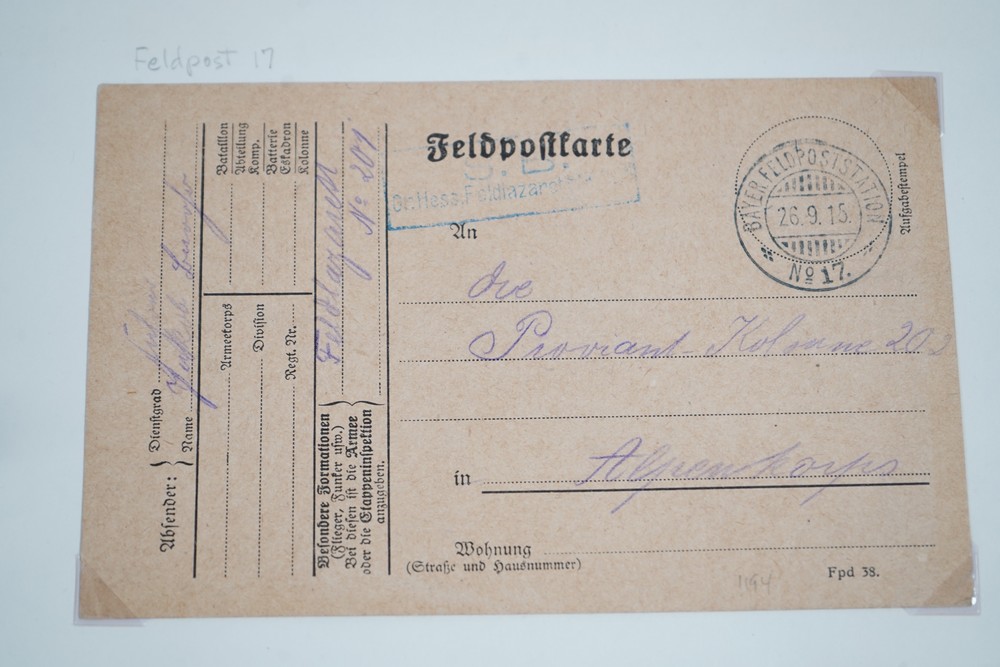 Feldpost 17
Feldpostkarte
S. B.
Gr. Hess. Feldlazarett
BAYER. FELDPOSTSTATION
26.9.15.
No 17.
Aufgabestempel
An
die
Proviant-Kolonne 202
in Alpenkorps
Wohnung
(Straße und Hausnummer)
Fpd 38.
1194
Absender:
Dienstgrad
Name
Bataillon
Abteilung
Komp.
Batterie
Eskadron
Kolonne
Armeekorps
Division
Regt. Nr.
Feldlazarett
No 201
Besondere Formationen
(Flieger, Funker usw.)
Bei diesen ist die Armee
oder die Etappeninspektion
anzugeben.